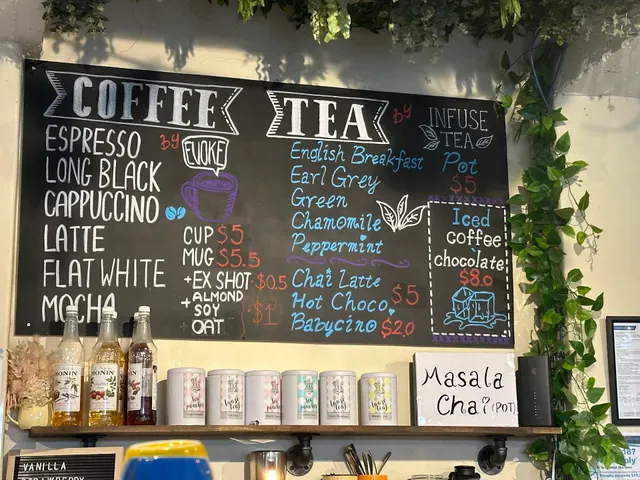 COFFEE
by EVOKE
ESPRESSO
LONG BLACK
CAPPUCCINO
LATTE
FLAT WHITE
MOCHA
CUP $5
MUG $5.5
+EX SHOT $0.5
+ALMOND
+SOY
OAT
$1
TEA by INFUSE
TEA
English Breakfast
Earl Grey
Green
Chamomile
Peppermint
Pot
$5
Chai Latte
Hot Choco
$5
Babycino $2.0
Iced
coffee
chocolate
$8.0
MONIN
MONIN
Masala
Chai (POT)
VANILLA
STRAWBERRY